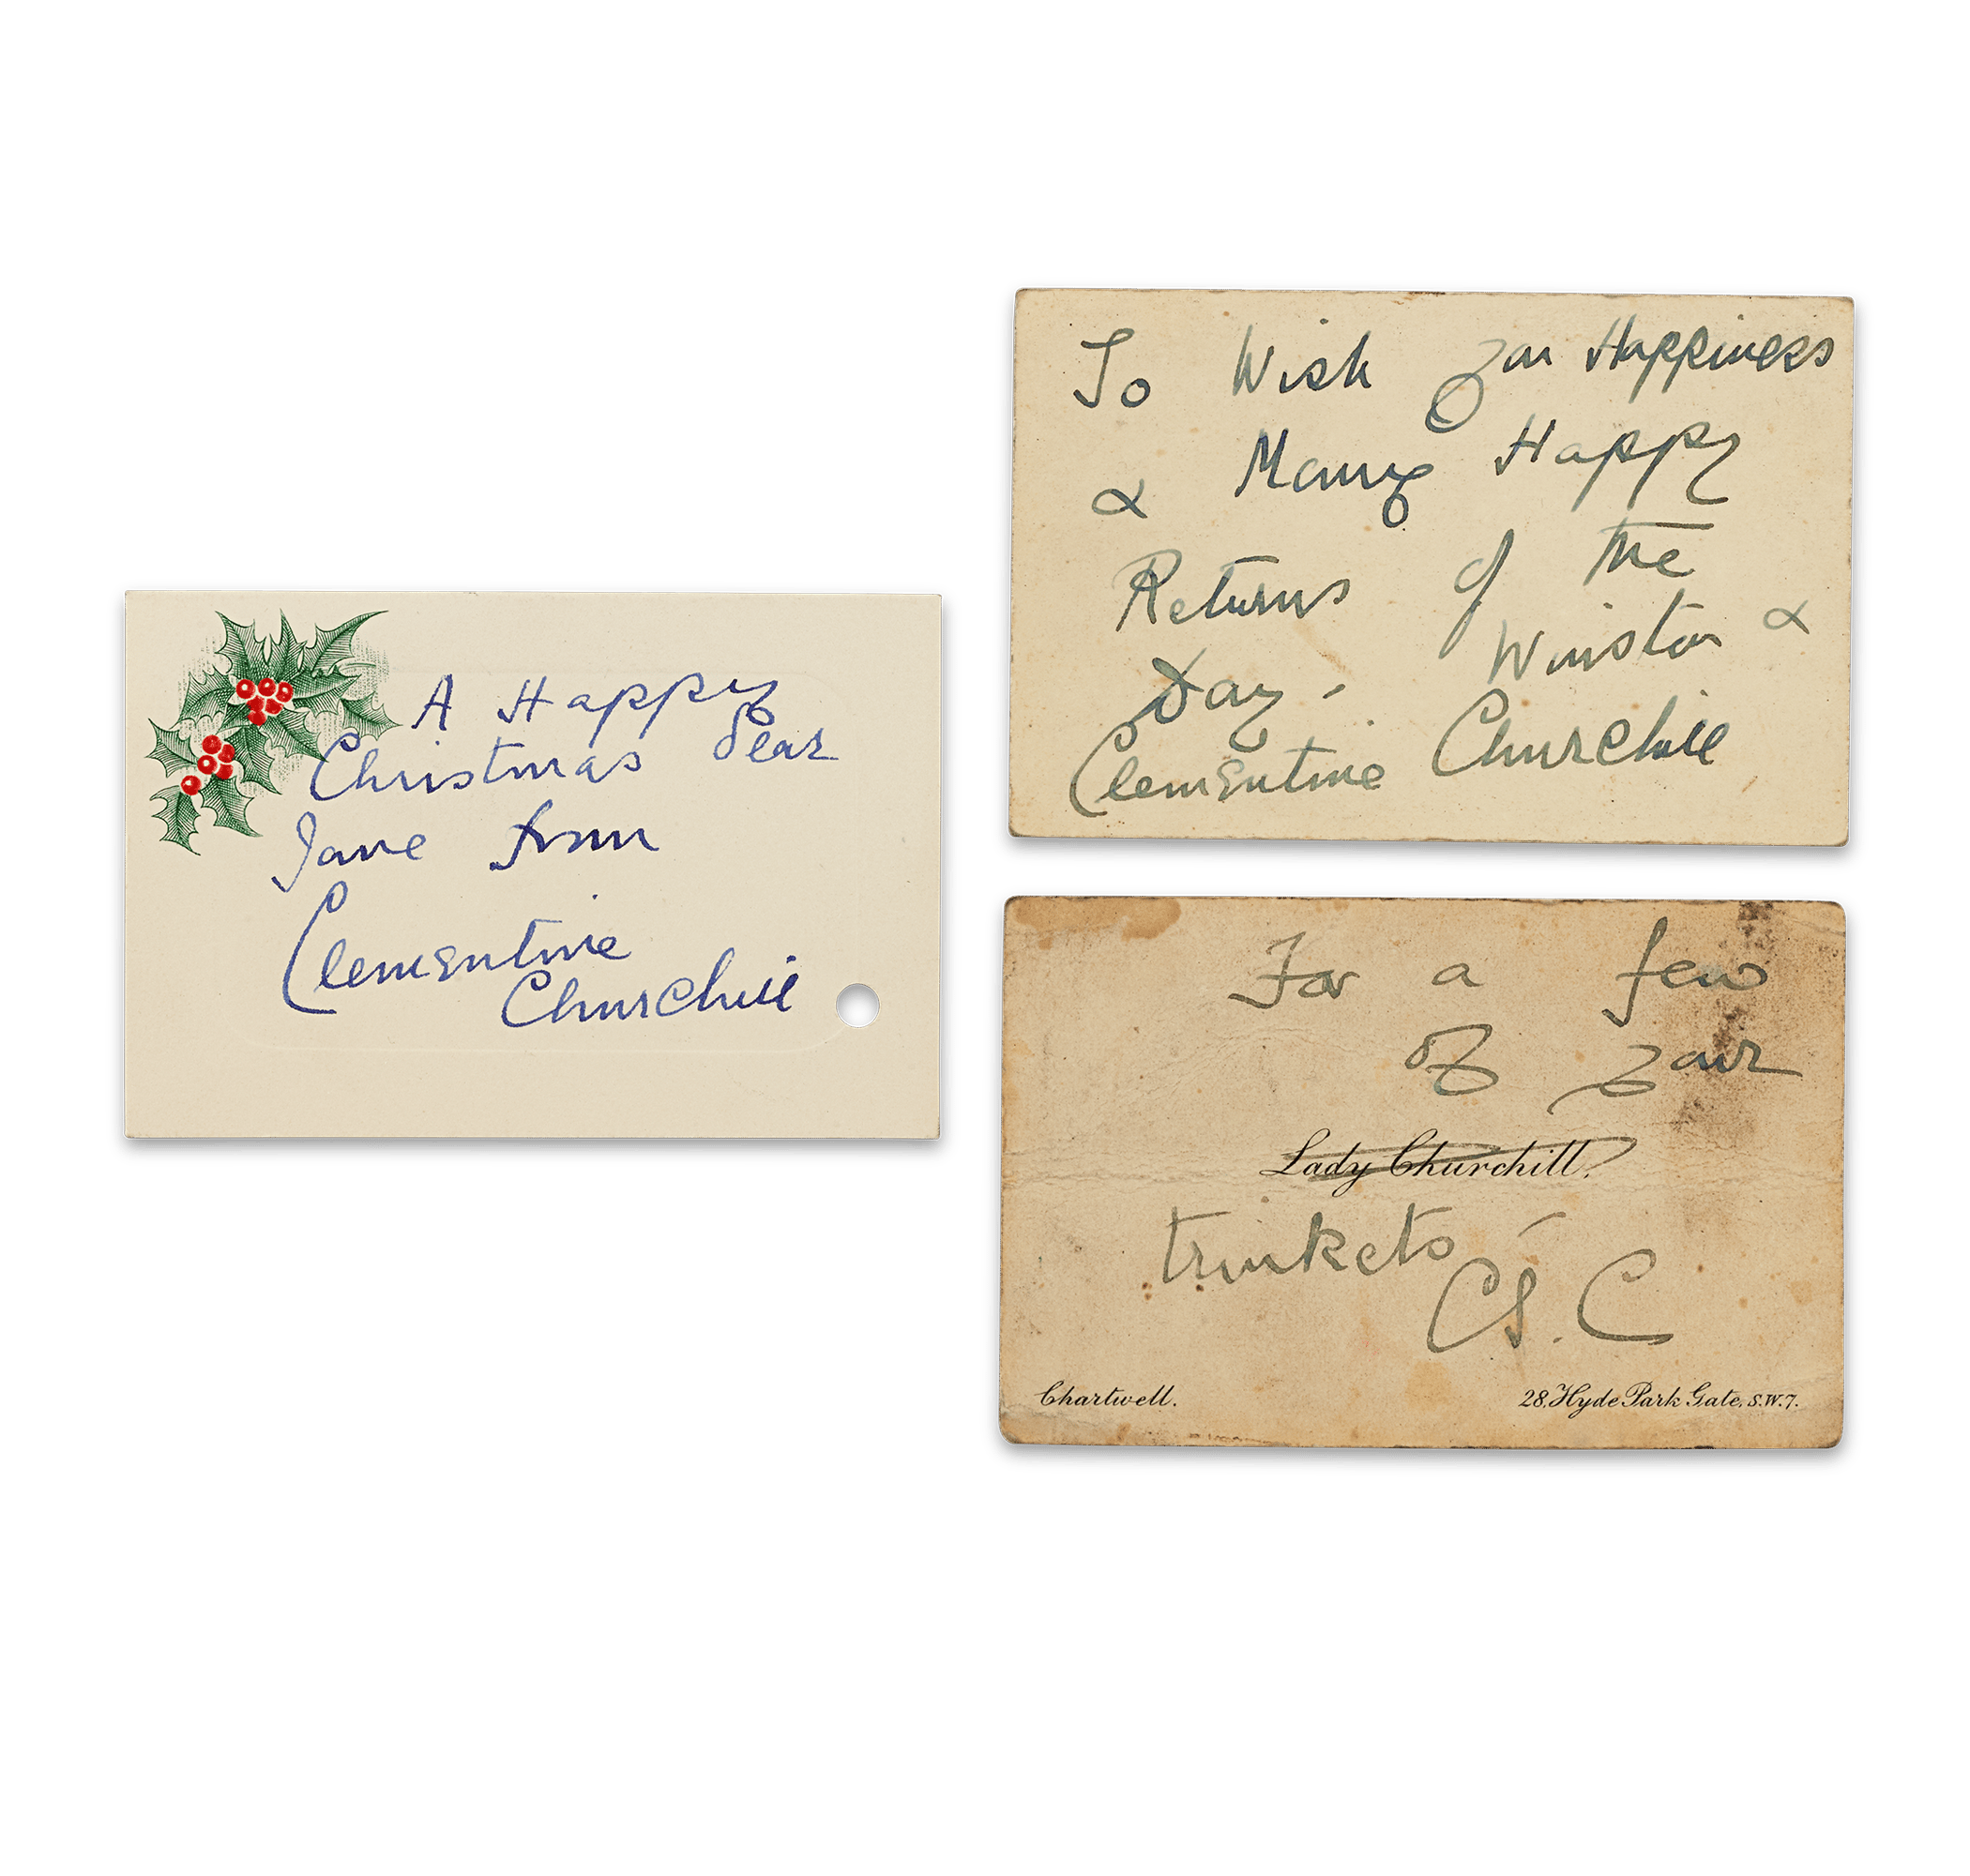 A Happy
Christmas dear
Jane from
Clementine
Churchill
To Wish you Happiness
& Many Happy
Returns of the
Day - Winston &
Clementine Churchill
For a few
of your
Lady Churchill.
trinkets -
CS. C
Chartwell.
28, Hyde Park Gate, S.W.7.